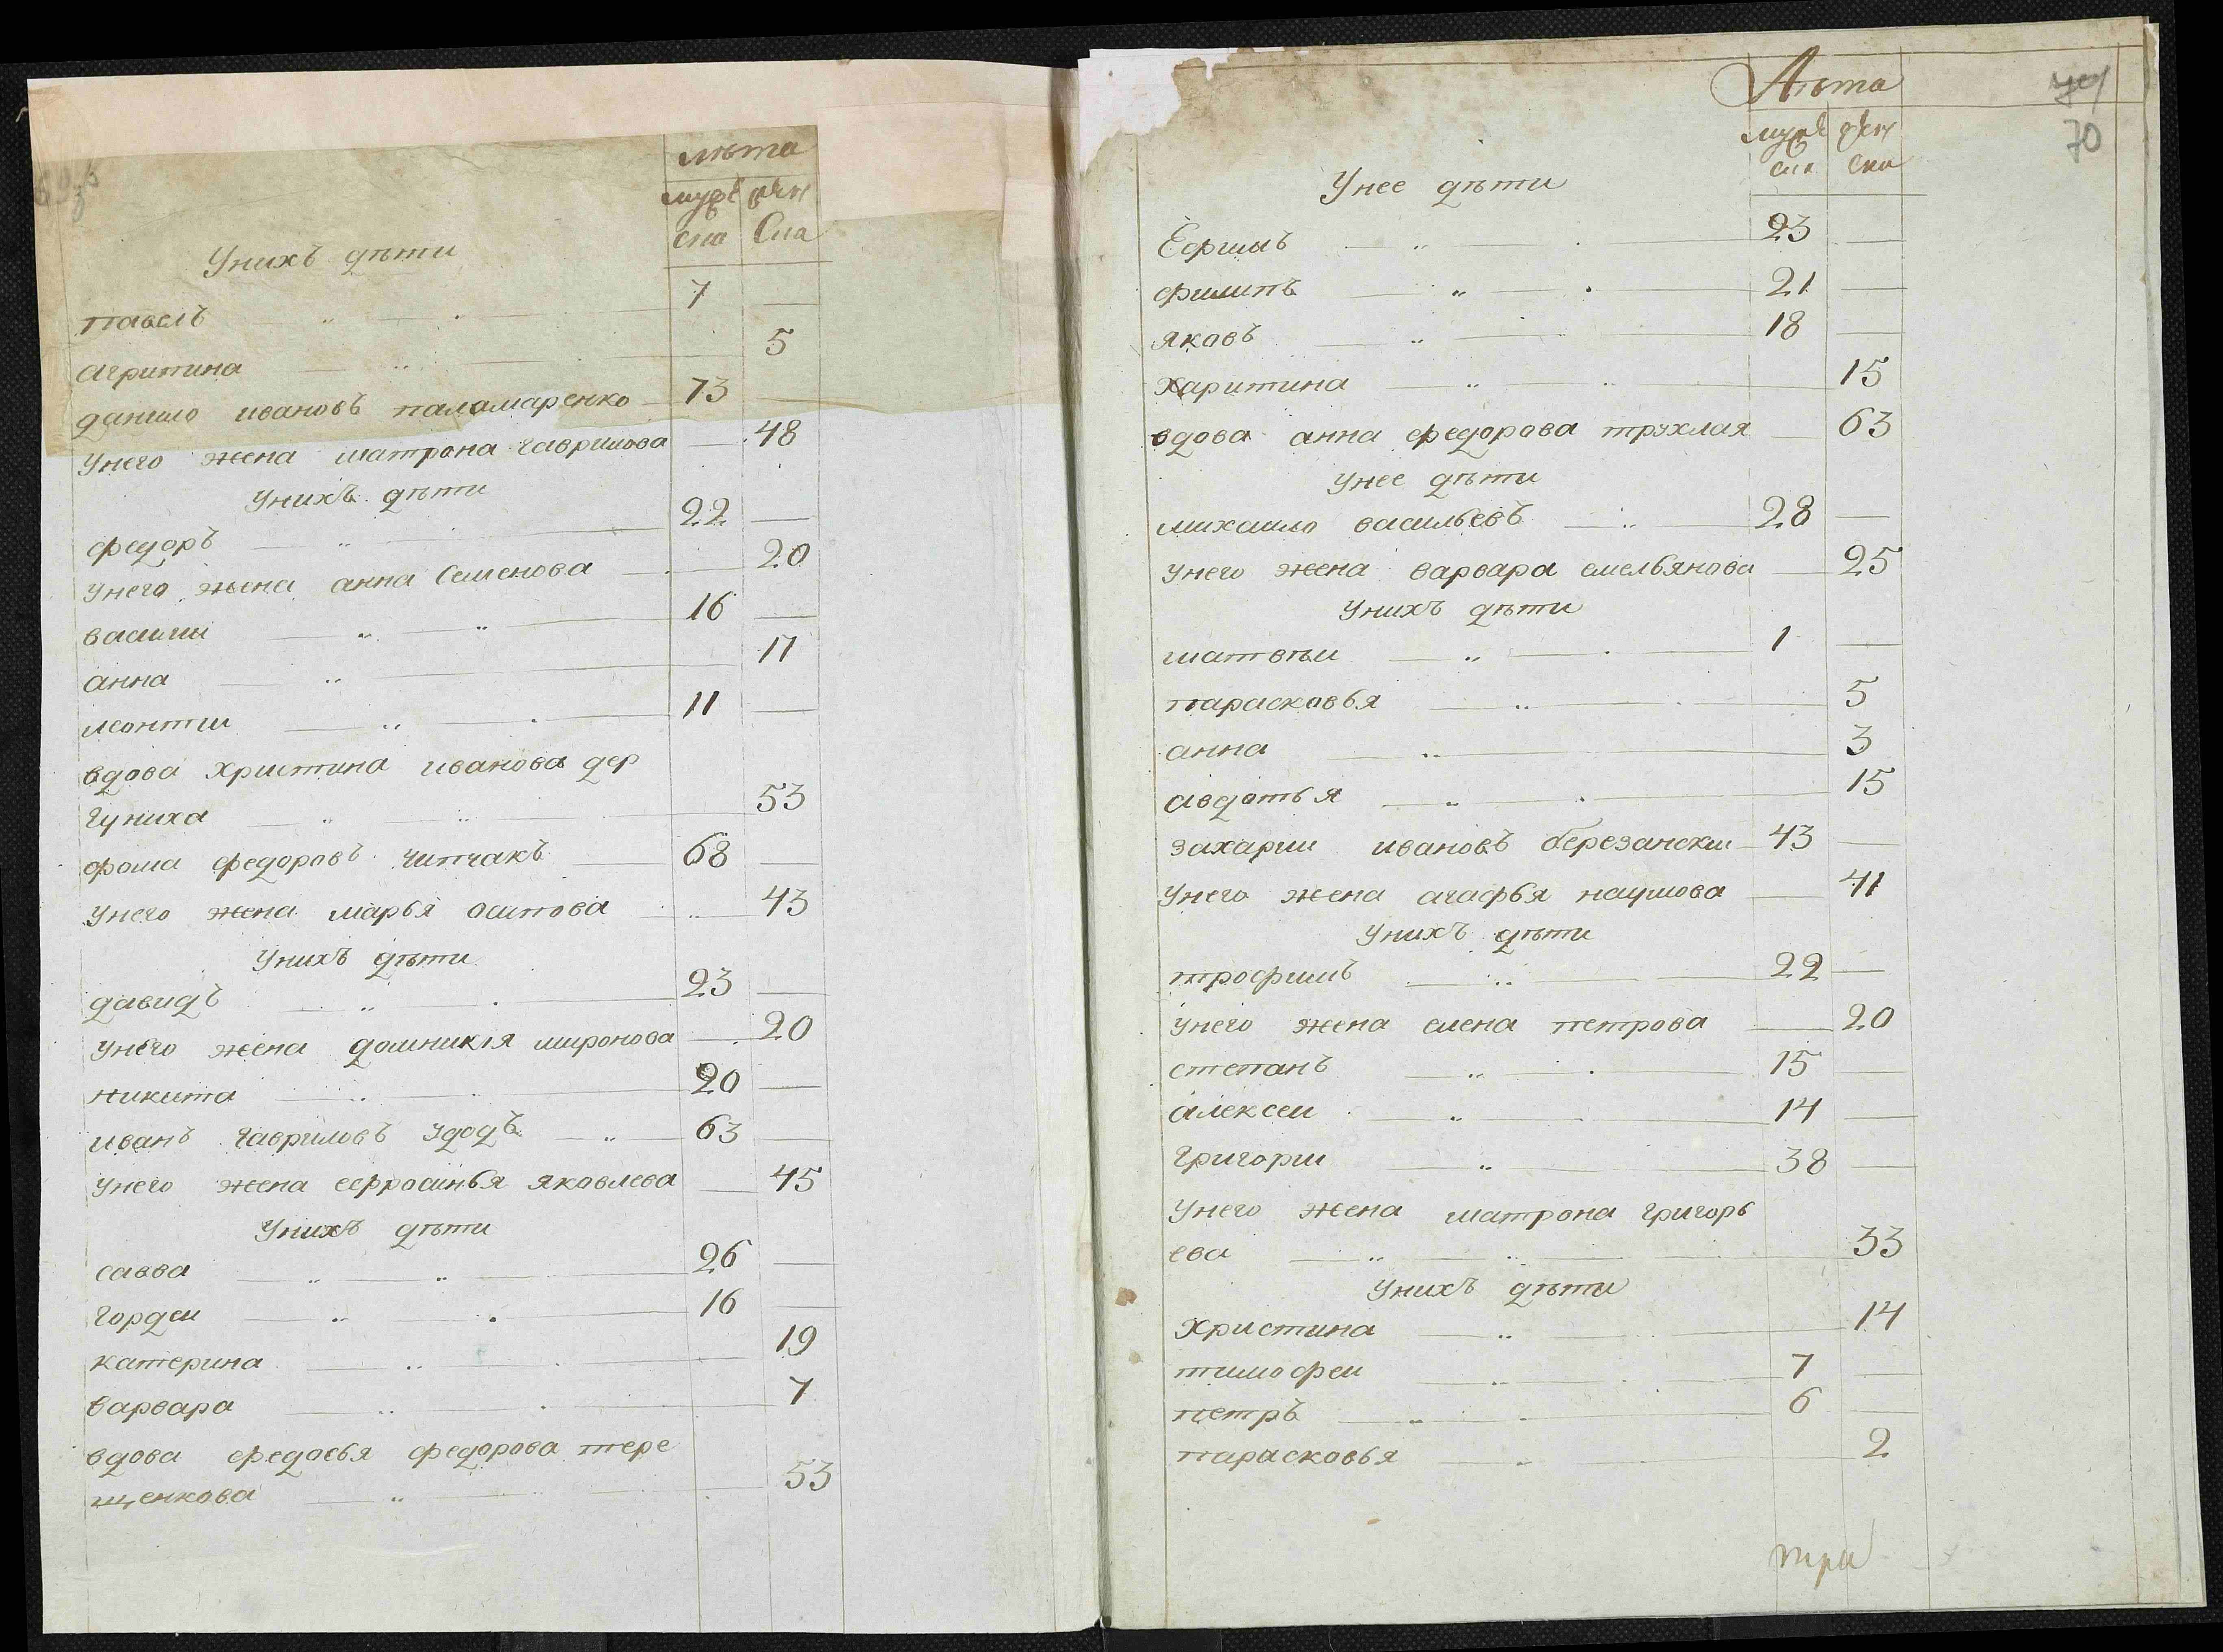 лѣта
муже женс
ска Ска
Унихъ дѣти
павелъ 7
агрипина 5
данило ивановъ паламаренко 73
унего жена матрона гаврилова 48
Унихъ дѣти
федоръ 22
унего жена анна Семенова 20
васили 16
анна 17
леонти 11
вдова христина иванова дер
гуниха 53
фома федоровъ чипчакъ 68
унего жена марья осипова 43
Унихъ дѣти
давидъ 23
унего жена домникія миронова 20
никита 20
иванъ гавриловъ удодъ 63
унего жена ефросинья яковлева 45
Унихъ дѣти
савва 26
гордеи 16
катерина 19
варвара 7
вдова федосья федорова тере
щенкова 53
Лѣта
70
Унее дѣти
Ефимъ 23
филипъ 21
яковъ 18
харитина 15
вдова анна федорова трухлая 63
унее дѣти
михаило васильевъ 28
унего жена варвара емельянова 25
Унихъ дѣти
матвѣи 1
парасковья 5
анна 3
авдотья 15
захарии ивановъ березански 43
унего жена агафья наумова 41
Унихъ дѣти
трофимъ 22
унего жена елена петрова 20
степанъ 15
алексеи 14
Григории 38
Унего жена матрона григорь
ева 33
Унихъ дѣти
Христина 14
тимофеи 7
петръ 6
парасковья 2